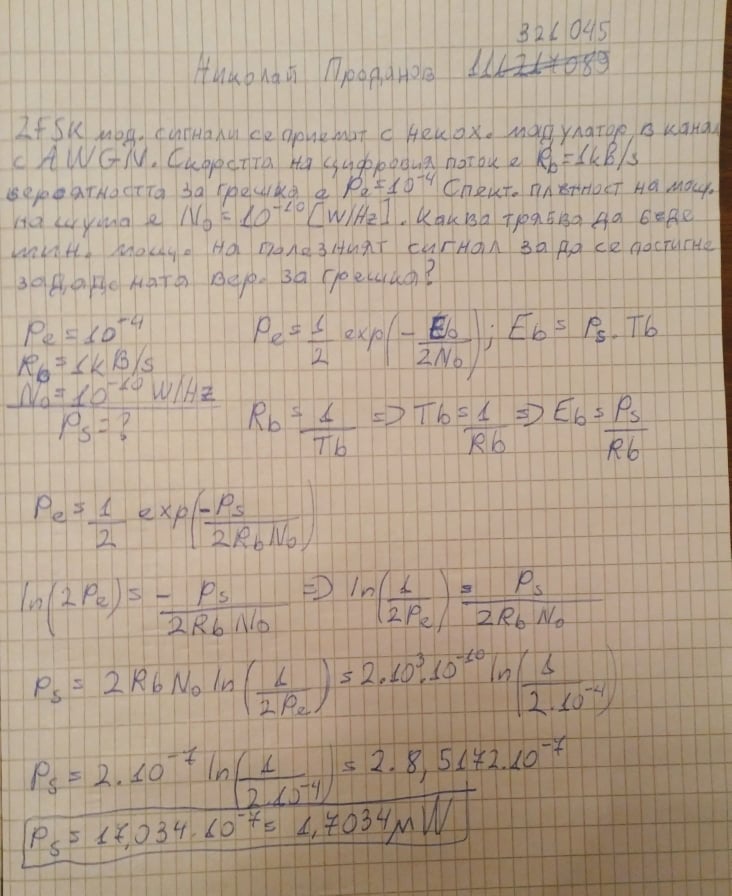 321045
Николай Проданов 111217089
2FSK мод. сигнали се приемат с некох. мадулатор в канал
с AWGN. Скоростта на цифровия поток е Rb=1kB/s
вероятността за грешка е Pe=10^-4 Спект. плътност на мощ.
на шума е N₀=10^-10 [W/Hz]. Каква трябва да бъде
мин. мощ. на полезният сигнал за да се постигне
зададената вер. за грешка?
Pe=10^-4 Pe=1/2 exp(-Eb/2N₀); Eb=Ps.Tb
Rb=1kB/s
N₀=10^-10 W/Hz
Ps=? Rb=1/Tb => Tb=1/Rb => Eb=Ps/Rb
Pe=1/2 exp(-Ps/2RbN₀)
ln(2Pe)=-Ps/2RbN₀ => ln(1/2Pe)=Ps/2RbN₀
Ps=2RbN₀ ln(1/2Pe)=2.10^3.10^-10 ln(1/2.10^-4)
Ps=2.10^-7 ln(1/2.10^-4)=2.8,5172.10^-7
Ps=17,034.10^-7=1,7034μW